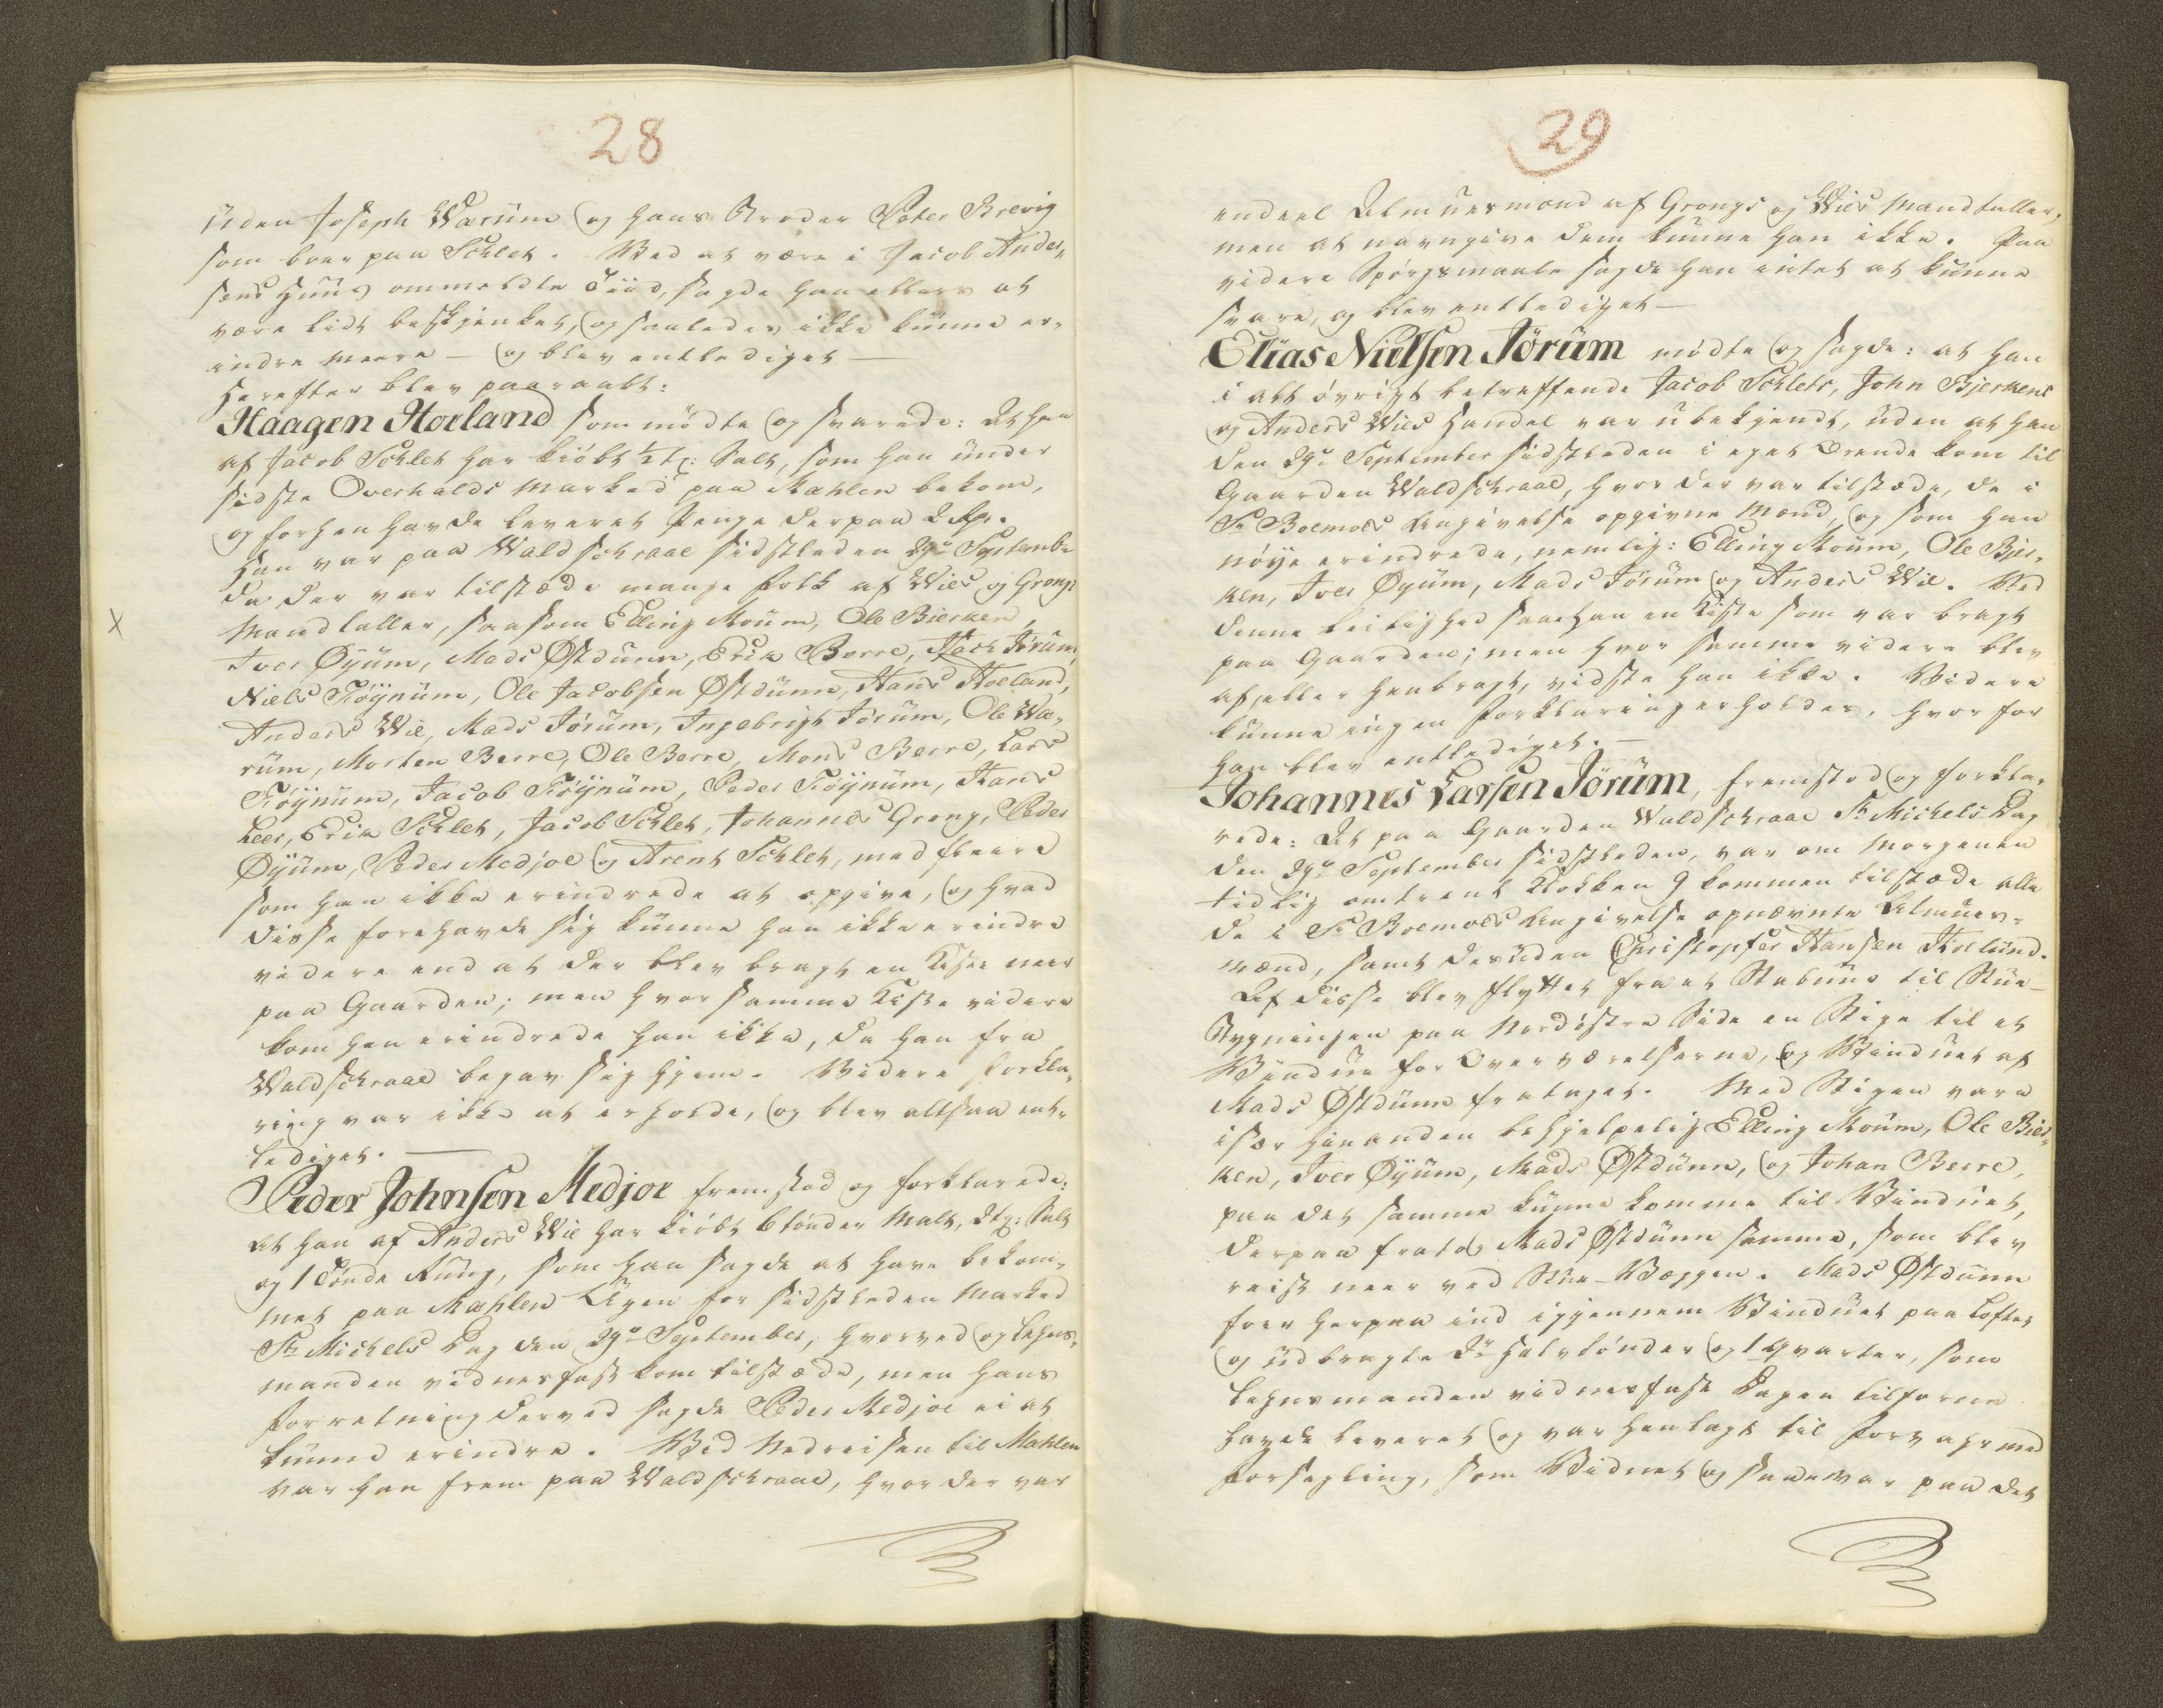 28
uden Joseph Wærum og hans Broder Peter Brevig
som boer paa Schlet. Ved at være i Jacob Ander,
sens Huus ommeldte Tiid, sagde han ellers at
være lidt beskjenket, og saaledes ikke kunne er,
indre meere – og blev entlediget –
Herefter blev paaraabt:
Haagen Hoeland som mødte og svarede: At han
af Jacob Schlet har kiøbt ½ tζ: Salt, som han under
sidste Overhalds Marked paa Mahlen bekom,
og forhen havde leveret Penge derpaa 2 Rp.
Han var paa Waldschraae sidstleden 29de Septembr
da der var tilstæde mange Folk af Wies og Grongs
Mandtaller, saasom Elling Moum, Ole Bierken,
Iver Øyum, Mads Østdunn, Erik Berre, Zach Jørum,
Niels Fiøynum, Ole Jacobsen Østdunn, Hans Hoeland,
Anders Wie, Mads Jørum, Ingebrigt Jørum, Ole Wæ,
rum, Morten Berre, Ole Berre, Mons Berre, Lars
Fiøynum, Jacob Fiøynum, Peder Fiøynum, Hans
Leer, Erik Schlet, Jacob Schlet, Johannes Grong, Peder
Øyum, Peder Medjoe og Arent Schlet, med fleere
som han ikke erindrede at opgive, og hvad
disse forehavde sig kunne han ikke erindre
videre end at der blev bragt en Kiste neer
paa Gaarden; men hvor samme Kiste videre
kom hen erindrede han ikke, da han fra
Waldschraae begav sig hjem. Videre Forkla,
ring var ikke at erholde, og blev altsaa ent,
lediget. –
Peder Johnsen Medjoe fremstod og forklarede:
At han af Anders Wie har kiøbt 6 tønder Malt, 2tζ: Salt
og 1 Tønde Rug, som han sagde at have bekom,
met paa Mahlen Ugen for sidstleden Marked
St Michels Dag den 29de September, hvorved og Lehns,
manden vidnesfast kom tilstæde, men hans
Forretning derved sagde Peder Medjoe ei at
kunne erindre. Ved Nedreisen til Mahlen
var han frem paa Waldschraae, hvor der var
29
endeel Almuesmænd af Grongs og Wies Mandtaller,
men at navngive dem kunne han ikke. Paa
videre Spørgsmaale sagde han intet at kunne
svare, og blev entlediget –
Elias Nielsen Jørum mødte og sagde: at han
i alt øvrigt betreffende Jacob Schlets, John Bjerkens
og Anders Wies Handel var ubekjendt, uden at han
den 29de September sidstleden i eget Ærende kom til
Gaarden Waldschraae, hvor der var tilstæde, de i
Sr Boemoes Angivelse opgivne Mænd, og som han
nøye erindrede, nemlig: Elling Moum, Ole Bier,
ken, Iver Øyum, Mads Jørum og Anders Wie. Ved
denne Leilighed saae han en Kiste som var bragt
paa Gaarden; men hvor samme videre blev
af, eller henbragt, vidste han ikke. Videre
kunne ingen Forklaring erholdes, hvorfor
han blev entlediget. –
Johannes Larsen Jørum, fremstod og forkla,
rede: At paa Gaarden Waldschraae St Michels Dag
den 29de September sidstleden, var om Morgenen
tidlig omtrent Klokken 9 kommen tilstæde alle
de i Sr Boemoes Angivelse opnævnte Almues,
mænd, samt desuden Christopfer Hansen Hoelund.
Af disse blev flyttet fra et Stabuur til Stue-
Bygningen paa Nordøstre Side en Stige til et
Vindue for Overværelserne, og Vinduet af
Mads Østdunn frataget. Med Stigen vare
især hinanden behjelpelig Elling Moum, Ole Bier,
ken, Iver Øyum, Mads Østdunn, og Johan Berre,
paa det samme kunne komme til Vinduet,
derpaa fratog Mads Østdunn samme, som blev
reist neer ved Stue-Væggen. Mads Østdunn
foer herpaa ind igjennem Vinduet paa Loftet
og udbragte 2de Halvtønder og 1 Qvarter, som
Lehnsmanden vidnesfast Dagen tilforne
havde leveret og var henlagt til Forvahr med
Forsegling, som Vidnet og saae var paa det